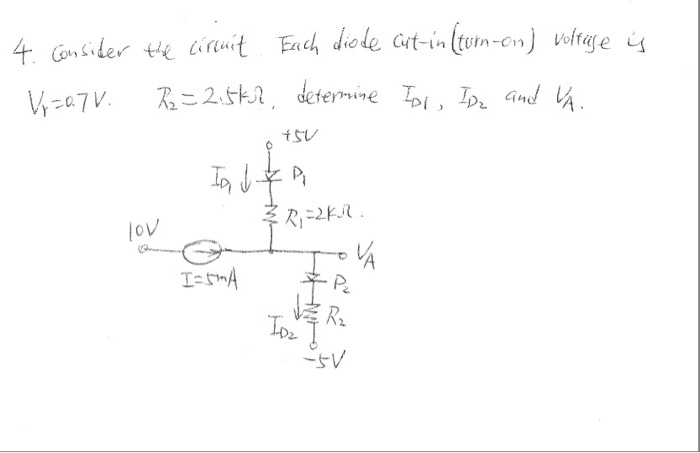 4. Consider the circuit. Each diode cut-in (turn-on) voltage is
Vr=0.7V. R2=2.5kΩ, determine ID1, ID2 and VA.
+5V
ID1 ↓ D1
R1=2kΩ.
10V
VA
I=5mA
D2
ID2 ↓ R2
-5V